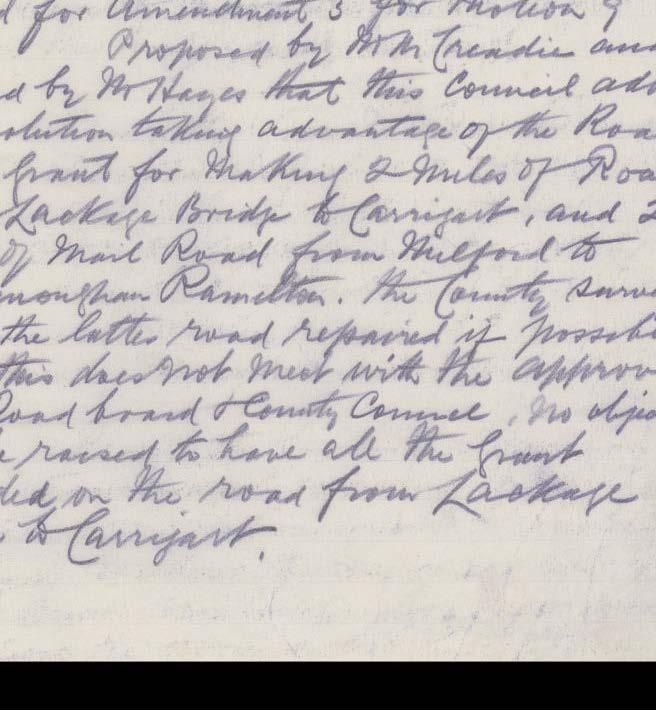 d for Amendment 3 for Motion 9
Proposed by Mr McCreadie and
d by Mr Hayes that this Council ado
solution taking advantage of the Roa
Grant for Making 2 Miles of Roa
Lackage Bridge to Carrigart, and 2
of Mail Road from Milford to
Ramelton. The County surve
the latter road repaired if possib
this does not meet with the approv
Road board & County Council, no objec
e raised to have all the Grant
ded on the road from Lackage
to Carrigart.